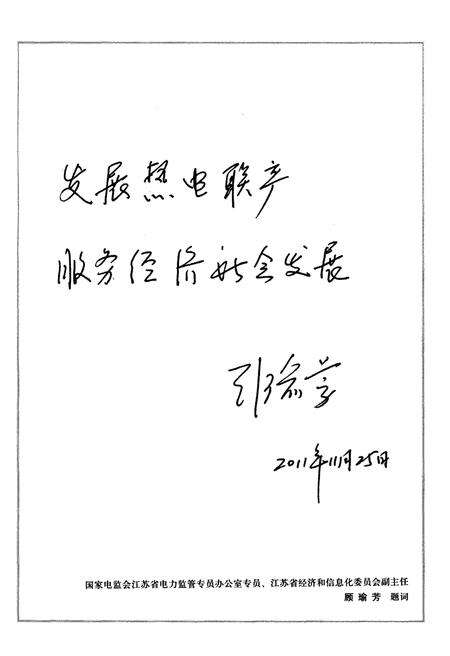 发展热电联产
服务经济社会发展
顾瑜芳
2011年11月25日
国家电监会江苏省电力监管专员办公室专员、江苏省经济和信息化委员会副主任
顾 瑜 芳 题词